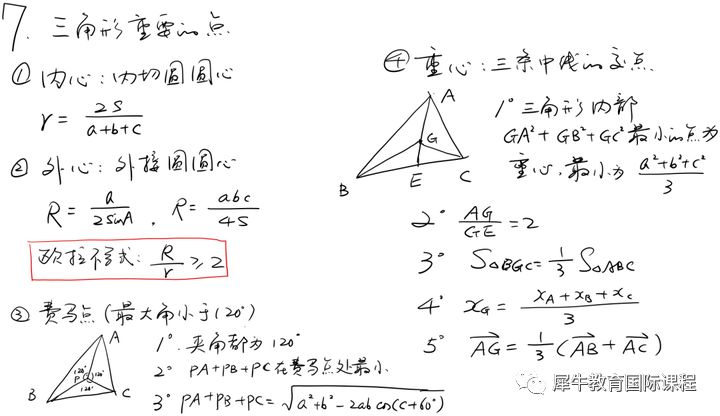 7. 三角形重要的点
① 内心:内切圆圆心
r = 2S / (a+b+c)
② 外心:外接圆圆心
R = a / 2sinA , R = abc / 4S
欧拉不等式: R/r ≥ 2
③ 费马点 (最大角小于120°)
A
120° 120°
P
120°
B C
1° 夹角都为120°
2° PA+PB+PC在费马点处最小
3° PA+PB+PC = √(a²+b²-2ab cos(C+60°))
④ 重心:三条中线的交点
A
G
B E C
1° 三角形内部
GA²+GB²+GC²最小的点为
重心,最小为 (a²+b²+c²) / 3
2° AG/GE = 2
3° S△BGC = 1/3 S△ABC
4° x_G = (x_A + x_B + x_C) / 3
5° AG→ = 1/3 (AB→ + AC→)
犀牛教育国际课程